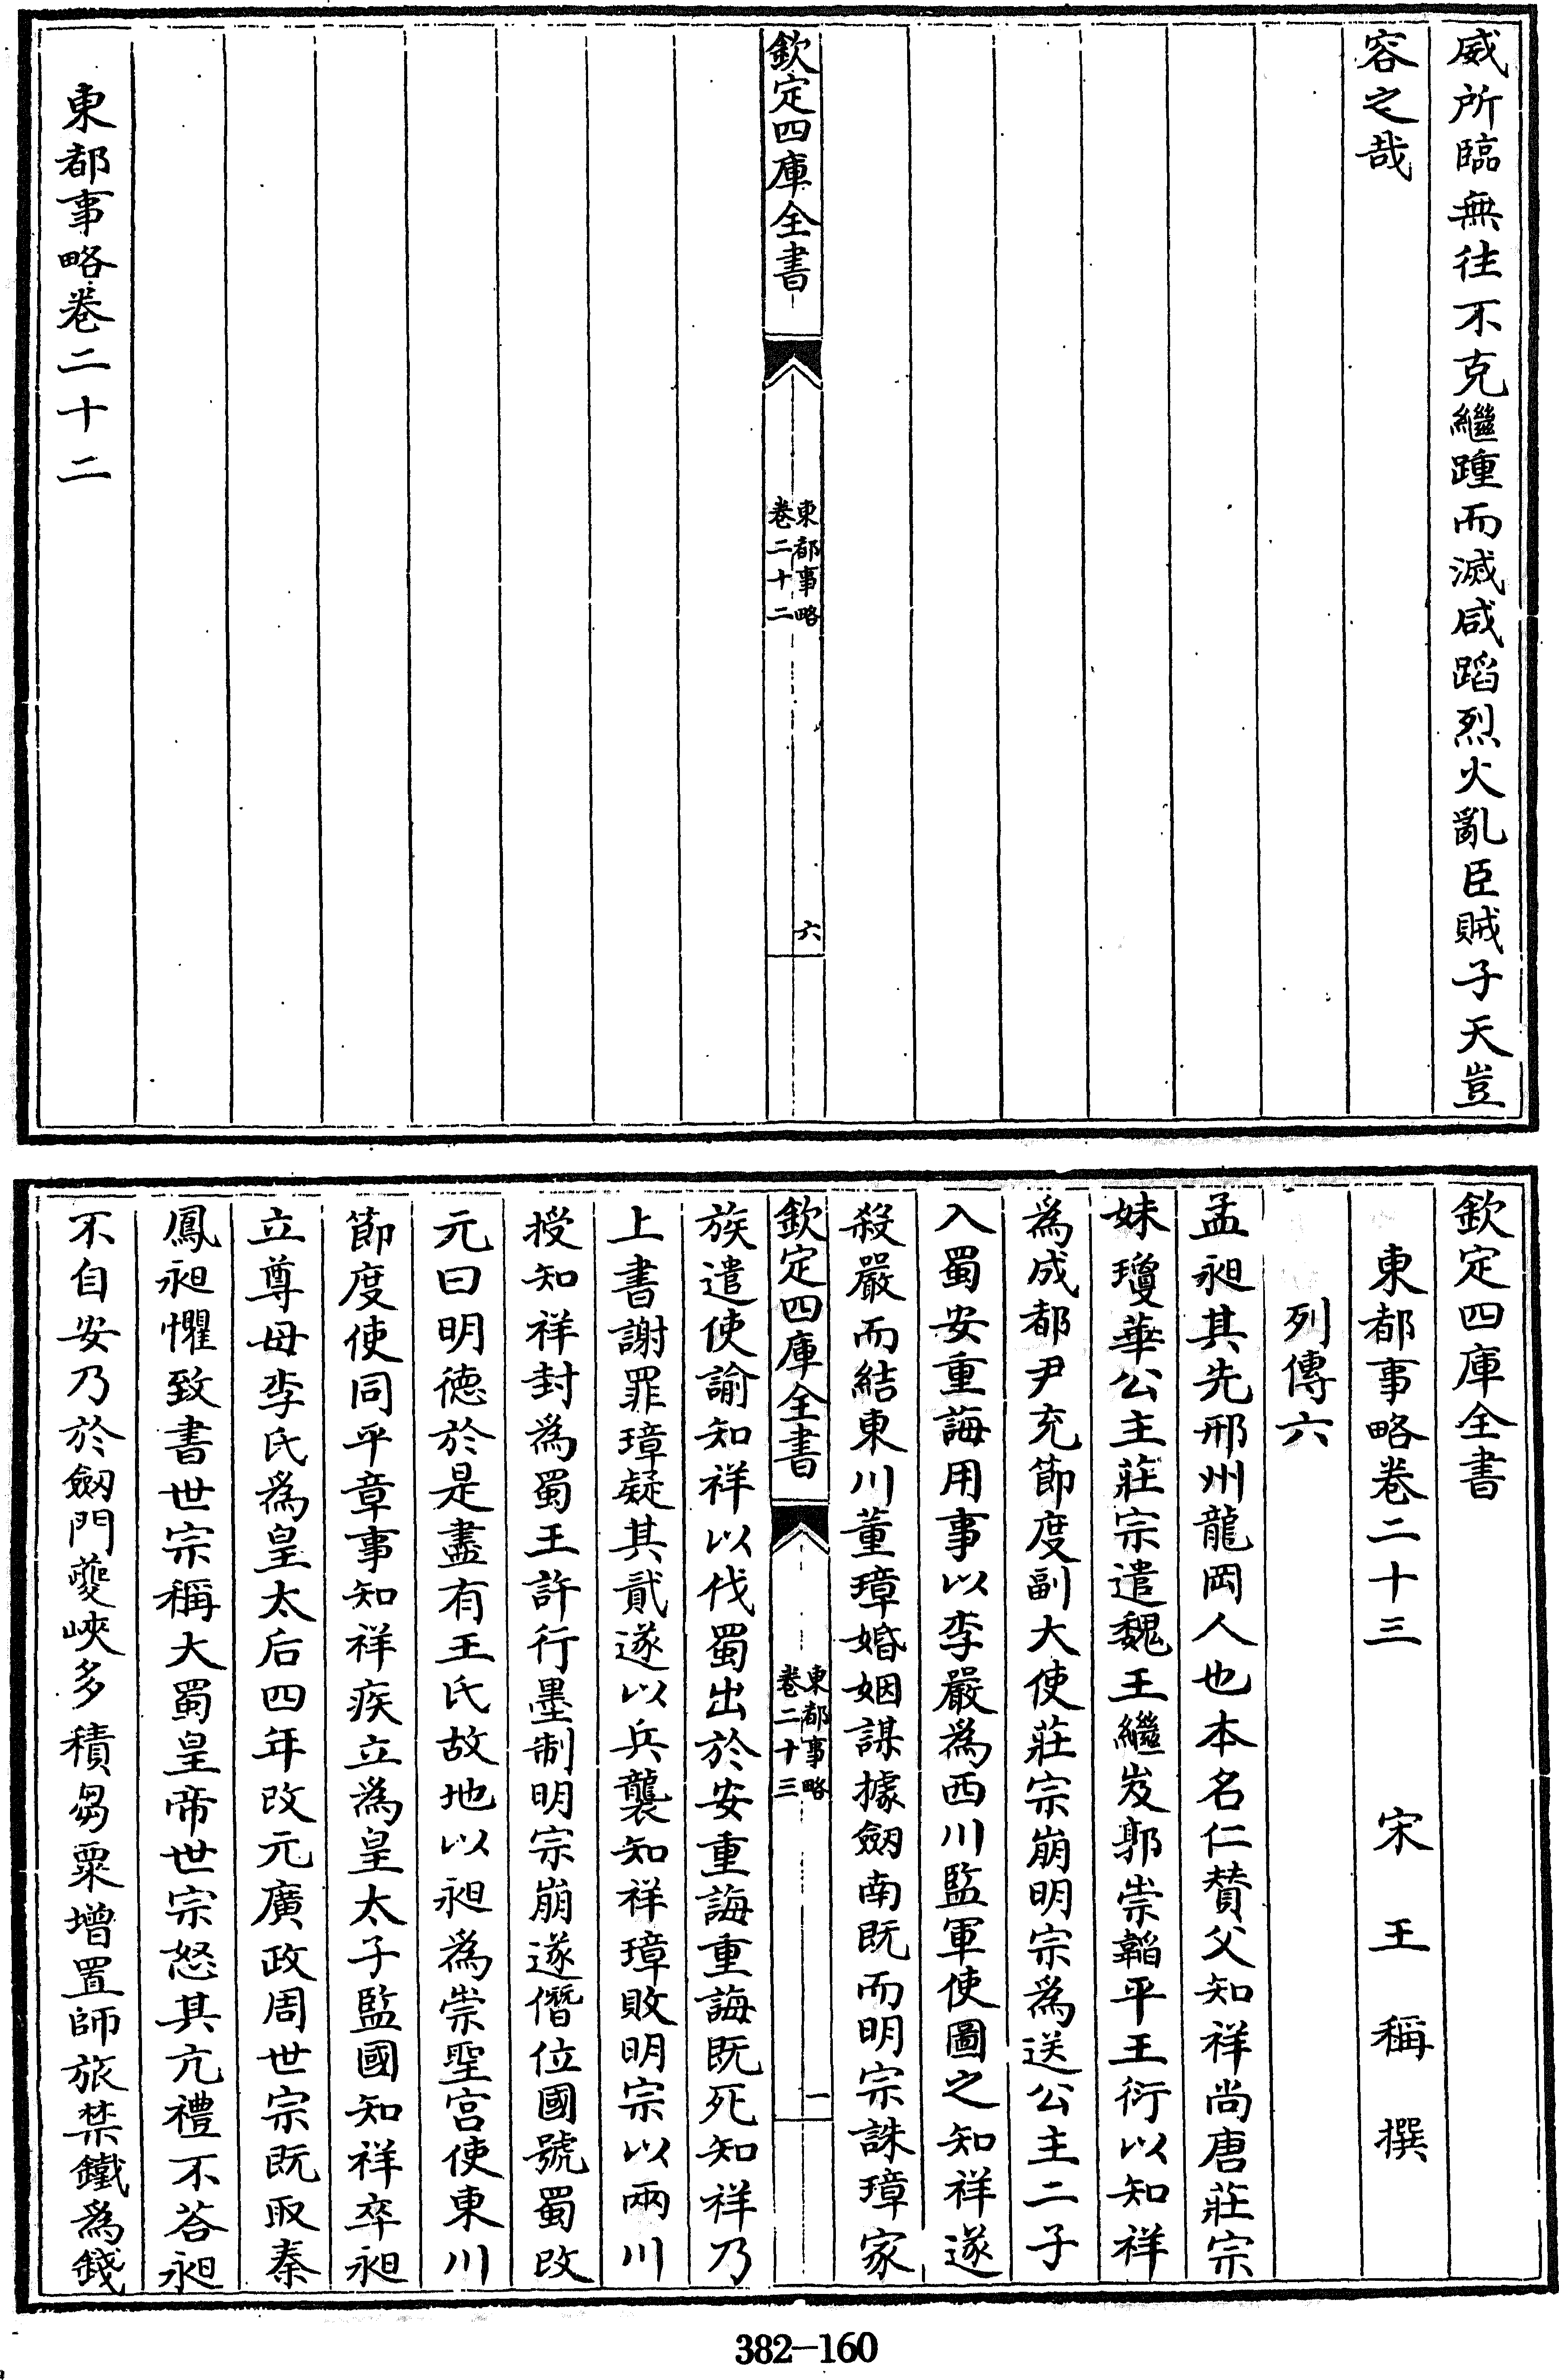 威所臨無往不克繼踵而滅咸蹈烈火亂臣賊子天豈
容之哉
欽定四庫全書
東都事略
卷二十二
六
東都事略卷二十二
欽定四庫全書
東都事略卷二十三
宋王稱撰
列傳六
孟昶其先邢州龍岡人也本名仁贊父知祥尚唐莊宗
妹瓊華公主莊宗遣魏王繼岌郭崇韜平王衍以知祥
為成都尹充節度副大使莊宗崩明宗為送公主二子
入蜀安重誨用事以李嚴為西川監軍使圖之知祥遂
殺嚴而結東川董璋婚姻謀據劔南既而明宗誅璋家
欽定四庫全書
東都事略
卷二十三
一
族遣使諭知祥以伐蜀出於安重誨重誨既死知祥乃
上書謝罪璋疑其貳遂以兵襲知祥璋敗明宗以兩川
授知祥封為蜀王許行墨制明宗崩遂僭位國號蜀改
元曰明德於是盡有王氏故地以昶為崇聖宫使東川
節度使同平章事知祥疾立為皇太子監國知祥卒昶
立尊母李氏為皇太后四年改元廣政周世宗既取秦
鳳昶懼致書世宗稱大蜀皇帝世宗怒其亢禮不荅昶
不自安乃於劔門夔峽多積芻粟增置師旅禁鐵為錢
382-160